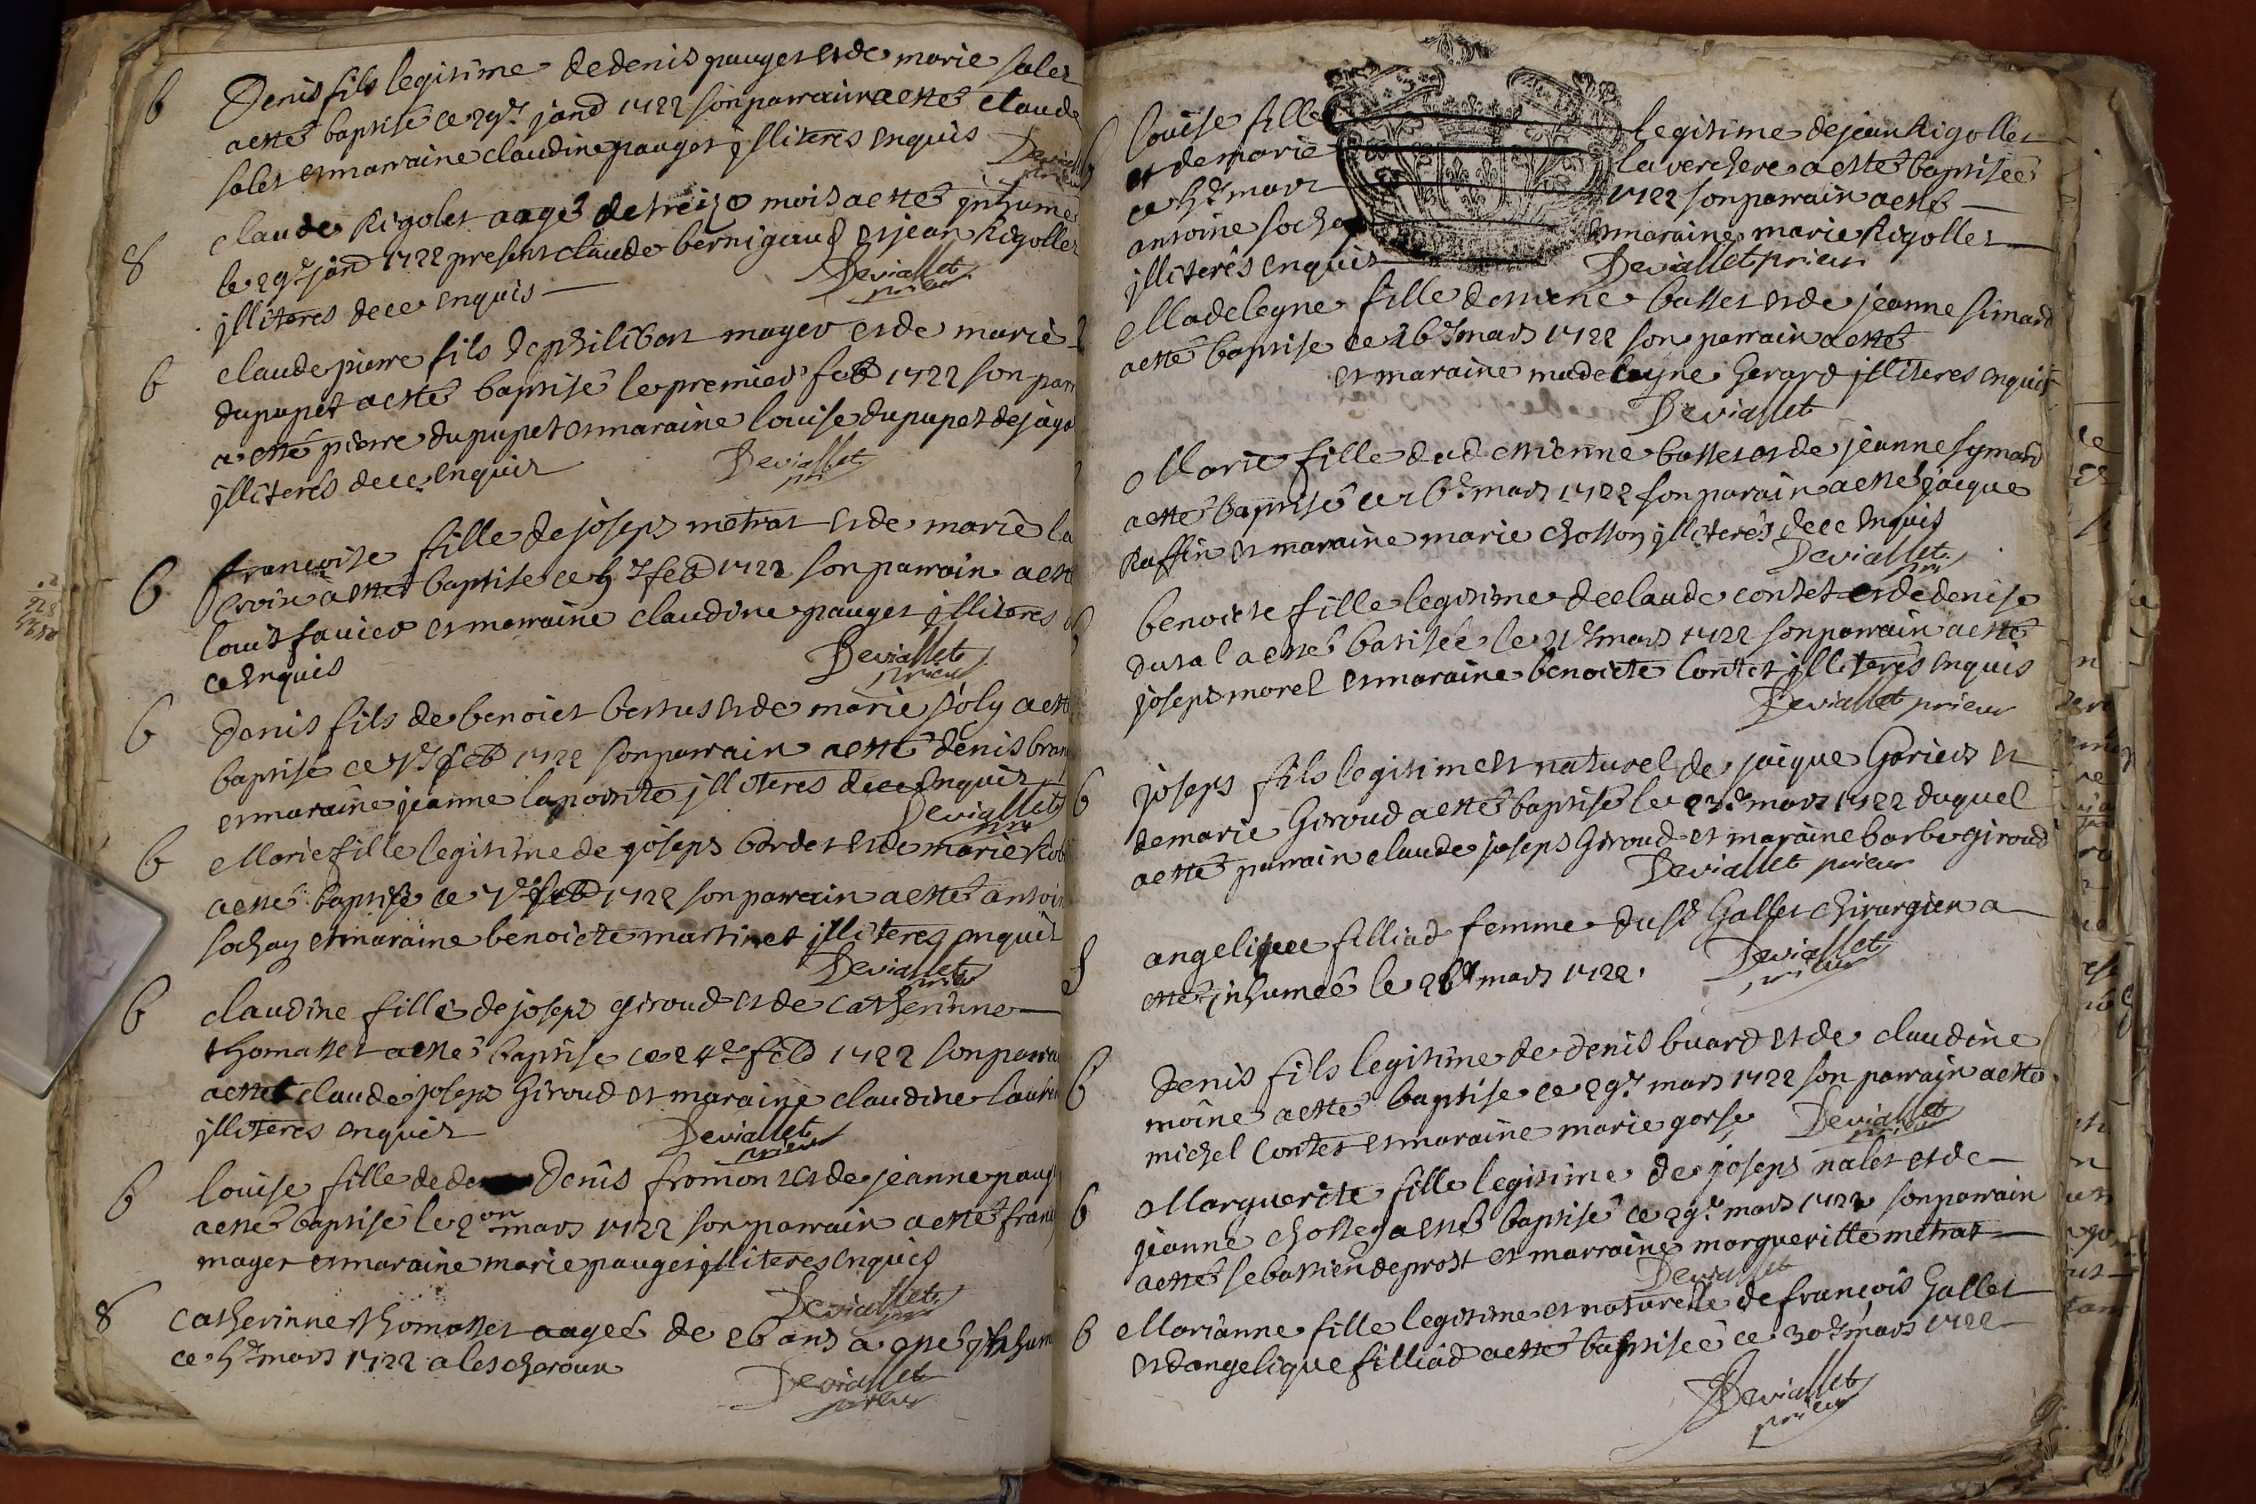 b Denis fils legitime de denis pauget et de marie salet
a esté baptisé ce 29e janv 1722 son parrain a esté claude
salet et marraine claudine pauget jlliteres enquis
Deviallet
prieur
8 claude Rigolet aagé de treize mois a esté jnhumé
le 29e janv 1722 present claude bernigaud et jean Rigollet
jlliteres de ce enquis
Deviallet
prieur
b claude pierre fils de philibert mayer et de marie
dupupet a esté baptisé le premier feb 1722 son parr
a esté pierre dupupet et maraine louise dupupet
jlliterés de ce enquis
Deviallet
pri
b francoise fille de joseph metrat et de marie la
croix a esté baptise ce 5e feb 1722 son parrain a esté
louis favier et marraine claudine pauget jlliteres
ce enquis
Deviallet
prieur
b Denis fils de benoict bertus et de marie joly a esté
baptisé ce 7e feb 1722 son parrain a esté denis
et maraine jeanne lapointe jlliteres de ce enquis
Deviallet
prieur
b Marie fille legitime de joseph bardet et de marie
a esté baptisé ce 7e feb 1722 son parrain a esté antoin
sochay et maraine benoicte martinet jlliteres enquis
Deviallet
prieur
b claudine fille de joseph giroud et de catherinne
thomasset a esté baptise ce 24e feb 1722 son parra
a esté claude joseph Giroud et maraine claudine
jlliteres enquis
Deviallet
prieur
b louise fille de Denis fromont et de jeanne paug
a esté baptisé le 2on mars 1722 son parrain a esté
mayet et maraine marie pauget jlliteres enquis
Deviallet
prieur
8 Catherinne thomasset aageé de 26 ans a esté jnhum
ce 5e mars 1722 a lescheroux
Deviallet
prieur
b louise fille legitime de jean Rigollet
et de marie la verchere a esté baptiseé
ce 5e mars 1722 son parrain a esté
antoine sochay et maraine marie Rigollet
jlliterés enquis
Deviallet prieur
Madelegne fille destiene basset et de jeanne simard
a esté baptise ce 16e mars 1722 son parrain a esté
et maraine madelayne Gerard jlliteres enquis
Deviallet
Marie fille dud estienne basset et de jeanne symard
a esté baptisé ce 16e mars 1722 son parain a esté jacque
Ruffin et marraine marie chosson jlliterés de ce enquis
Deviallet
pri
b benoicte fille legitime de claude contet et de denise
dutal a esté batiseé le 21e mars 1722 son parrain a esté
joseph morel et maraine benoicte Contet jlliterés enquis
Deviallet prieur
b joseph fils legitime et naturel de jacque Goriers et
de marie Giroud a esté baptisé le 23e mars 1722 duquel
a esté parrain claude joseph Giroud et maraine barbe giroud
Deviallet prieur
8 angelique filliad femme du sr Gallet chirurgien a
esté jnhumeé le 28e mars 1722
Deviallet
prieur
b Denis fils legitime de denis buard et de claudine
moine a esté baptisé ce 29e mars 1722 son parrain a esté
michel Contet et maraine marie gorse
Deviallet
prieur
b Marguerite fille legitime de joseph nalet et de
jeanne a esté baptisé ce 29e mars 1722 son parrain
a esté sebastien deprost et marraine margueritte metrat
Deviallet
b Marianne fille legitime et naturelle de françois Gallet
et dangelique filliad a esté baptiseé ce 30e mars 1722
Deviallet
prieur